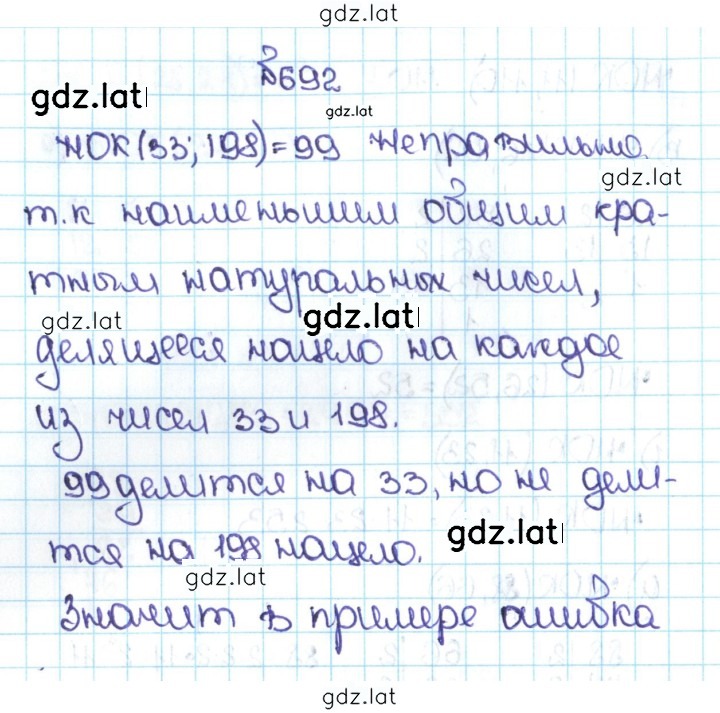 gdz.lat
№692
gdz.lat
gdz.lat
НОК(33; 198)=99 неправильно.
gdz.lat
т.к наименьшим общим кра-
тным натуральных чисел,
gdz.lat gdz.lat
делящееся нацело на каждое
из чисел 33 и 198.
99 делится на 33, но не дели-
тся на 198 нацело.
gdz.lat
gdz.lat
Значит в примере ошибка
gdz.lat